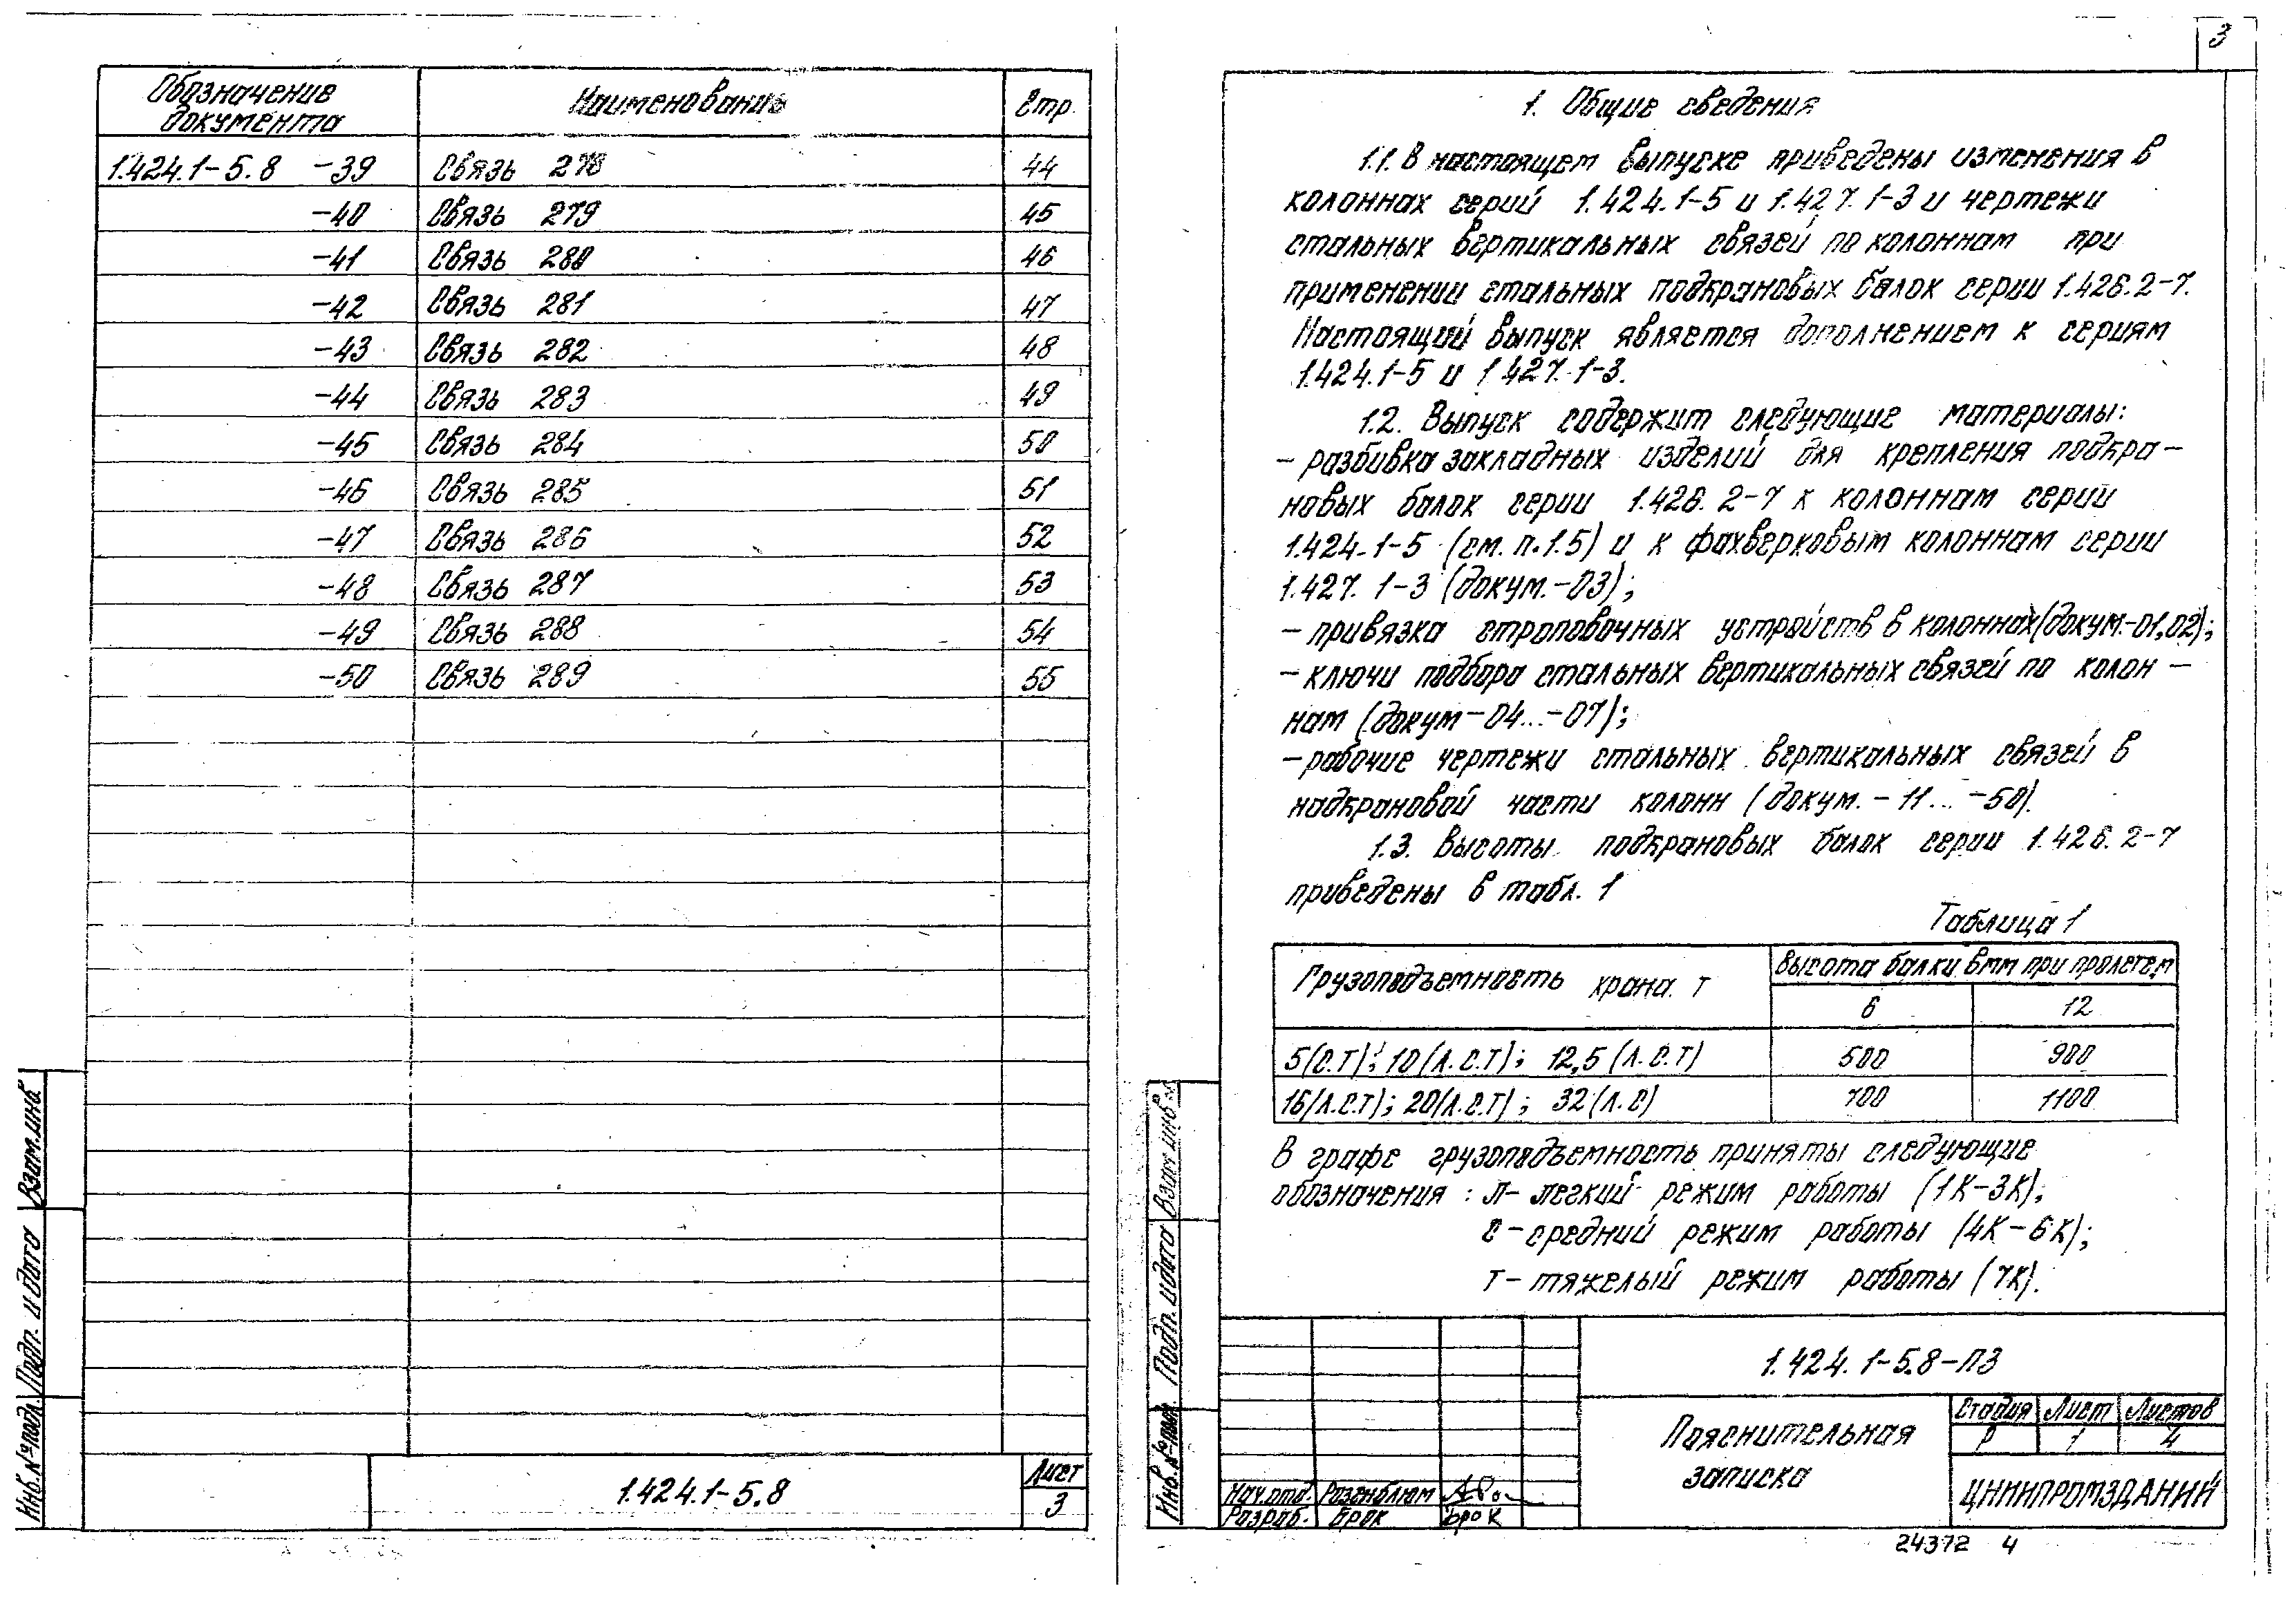 Обозначение документа Наименование Стр.
1.424.1-5.8 -39 Связь 278 44
-40 Связь 279 45
-41 Связь 280 46
-42 Связь 281 47
-43 Связь 282 48
-44 Связь 283 49
-45 Связь 284 50
-46 Связь 285 51
-47 Связь 286 52
-48 Связь 287 53
-49 Связь 288 54
-50 Связь 289 55
Взам.инв
Подп. и дата
Инв.№подл.
1.424.1-5.8
Лист
3
3
1. Общие сведения
1.1. В настоящем выпуске приведены изменения в
колоннах серий 1.424.1-5 и 1.427.1-3 и чертежи
стальных вертикальных связей по колоннам при
применении стальных подкрановых балок серии 1.426.2-7.
Настоящий выпуск является дополнением к сериям
1.424.1-5 и 1.427.1-3.
1.2. Выпуск содержит следующие материалы:
- разбивка закладных изделий для крепления подкра-
новых балок серии 1.426.2-7 к колоннам серии
1.424.1-5 (см. п.1.5) и к фахверковым колоннам серии
1.427.1-3 (докум.-03);
- привязка строповочных устройств в колоннах (докум.-01,02);
- ключи подбора стальных вертикальных связей по колон-
нам (докум-04...-07);
- рабочие чертежи стальных вертикальных связей в
надкрановой части колонн (докум.-11...-50).
1.3. Высоты подкрановых балок серии 1.426.2-7
приведены в табл. 1
Таблица 1
Грузоподъемность крана. т
Высота балки в мм при пролете, м
6 12
5(С.Т); 10(Л.С.Т); 12,5(Л.С.Т) 500 900
16(Л.С.Т); 20(Л.С.Т); 32(Л.С) 700 1100
В графе грузоподъемность приняты следующие
обозначения: Л- легкий режим работы (1К-3К);
С-средний режим работы (4К-6К);
Т- тяжелый режим работы (7К).
Взам инв
Подп. и дата
Инв.№подл.
1.424.1-5.8-ПЗ
Пояснительная
записка
Стадия Лист Листов
Р 1 4
ЦНИИПРОМЗДАНИЙ
Нач.отд. Розенблюм
Разраб. Брок Брок
24372 4